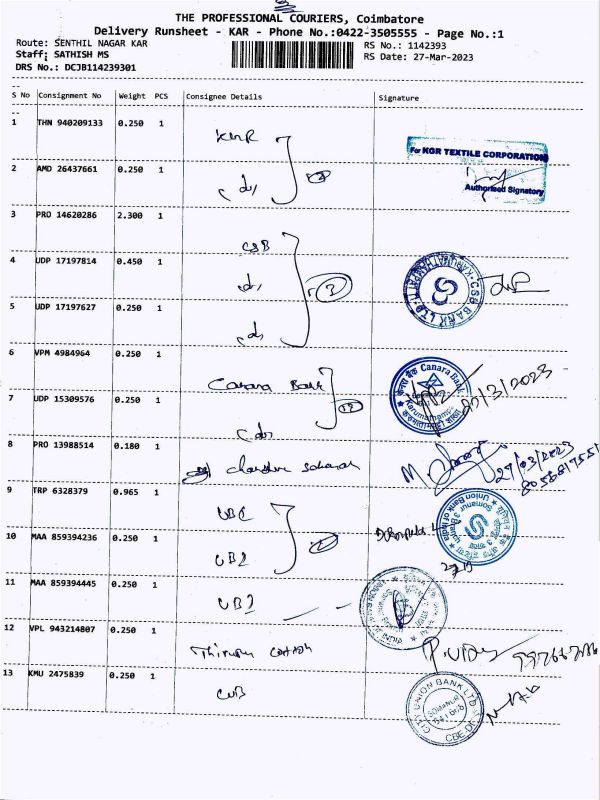 THE PROFESSIONAL COURIERS, Coimbatore
Delivery Runsheet - KAR - Phone No.:0422-3505555 - Page No.:1
Route: SENTHIL NAGAR KAR
RS No.: 1142393
Staff: SATHISH MS
RS Date: 27-Mar-2023
DRS No.: DCJB114239301
S No Consignment No Weight PCS Consignee Details Signature
1 THN 940209133 0.250 1 KGR
For KGR TEXTILE CORPORATION
Authorised Signatory
2 AMD 26437661 0.250 1
3 PRO 14620286 2.300 1 CSB
4 UDP 17197814 0.450 1
CSB BANK LTD
5 UDP 17197627 0.250 1
6 VPM 4984964 0.250 1 Canara Bank
Canara Bank
27/3/2023
7 UDP 15309576 0.250 1
8 PRO 13988514 0.180 1
27/03/2023
9 TRP 6328379 0.965 1 UBI
Union Bank of India
Somanur
10 MAA 859394236 0.250 1 UBI
11 MAA 859394445 0.250 1 UBI
12 VPL 943214807 0.250 1
13 KMU 2475839 0.250 1 CUB
CITY UNION BANK LTD
SOMANUR
CBE.DT